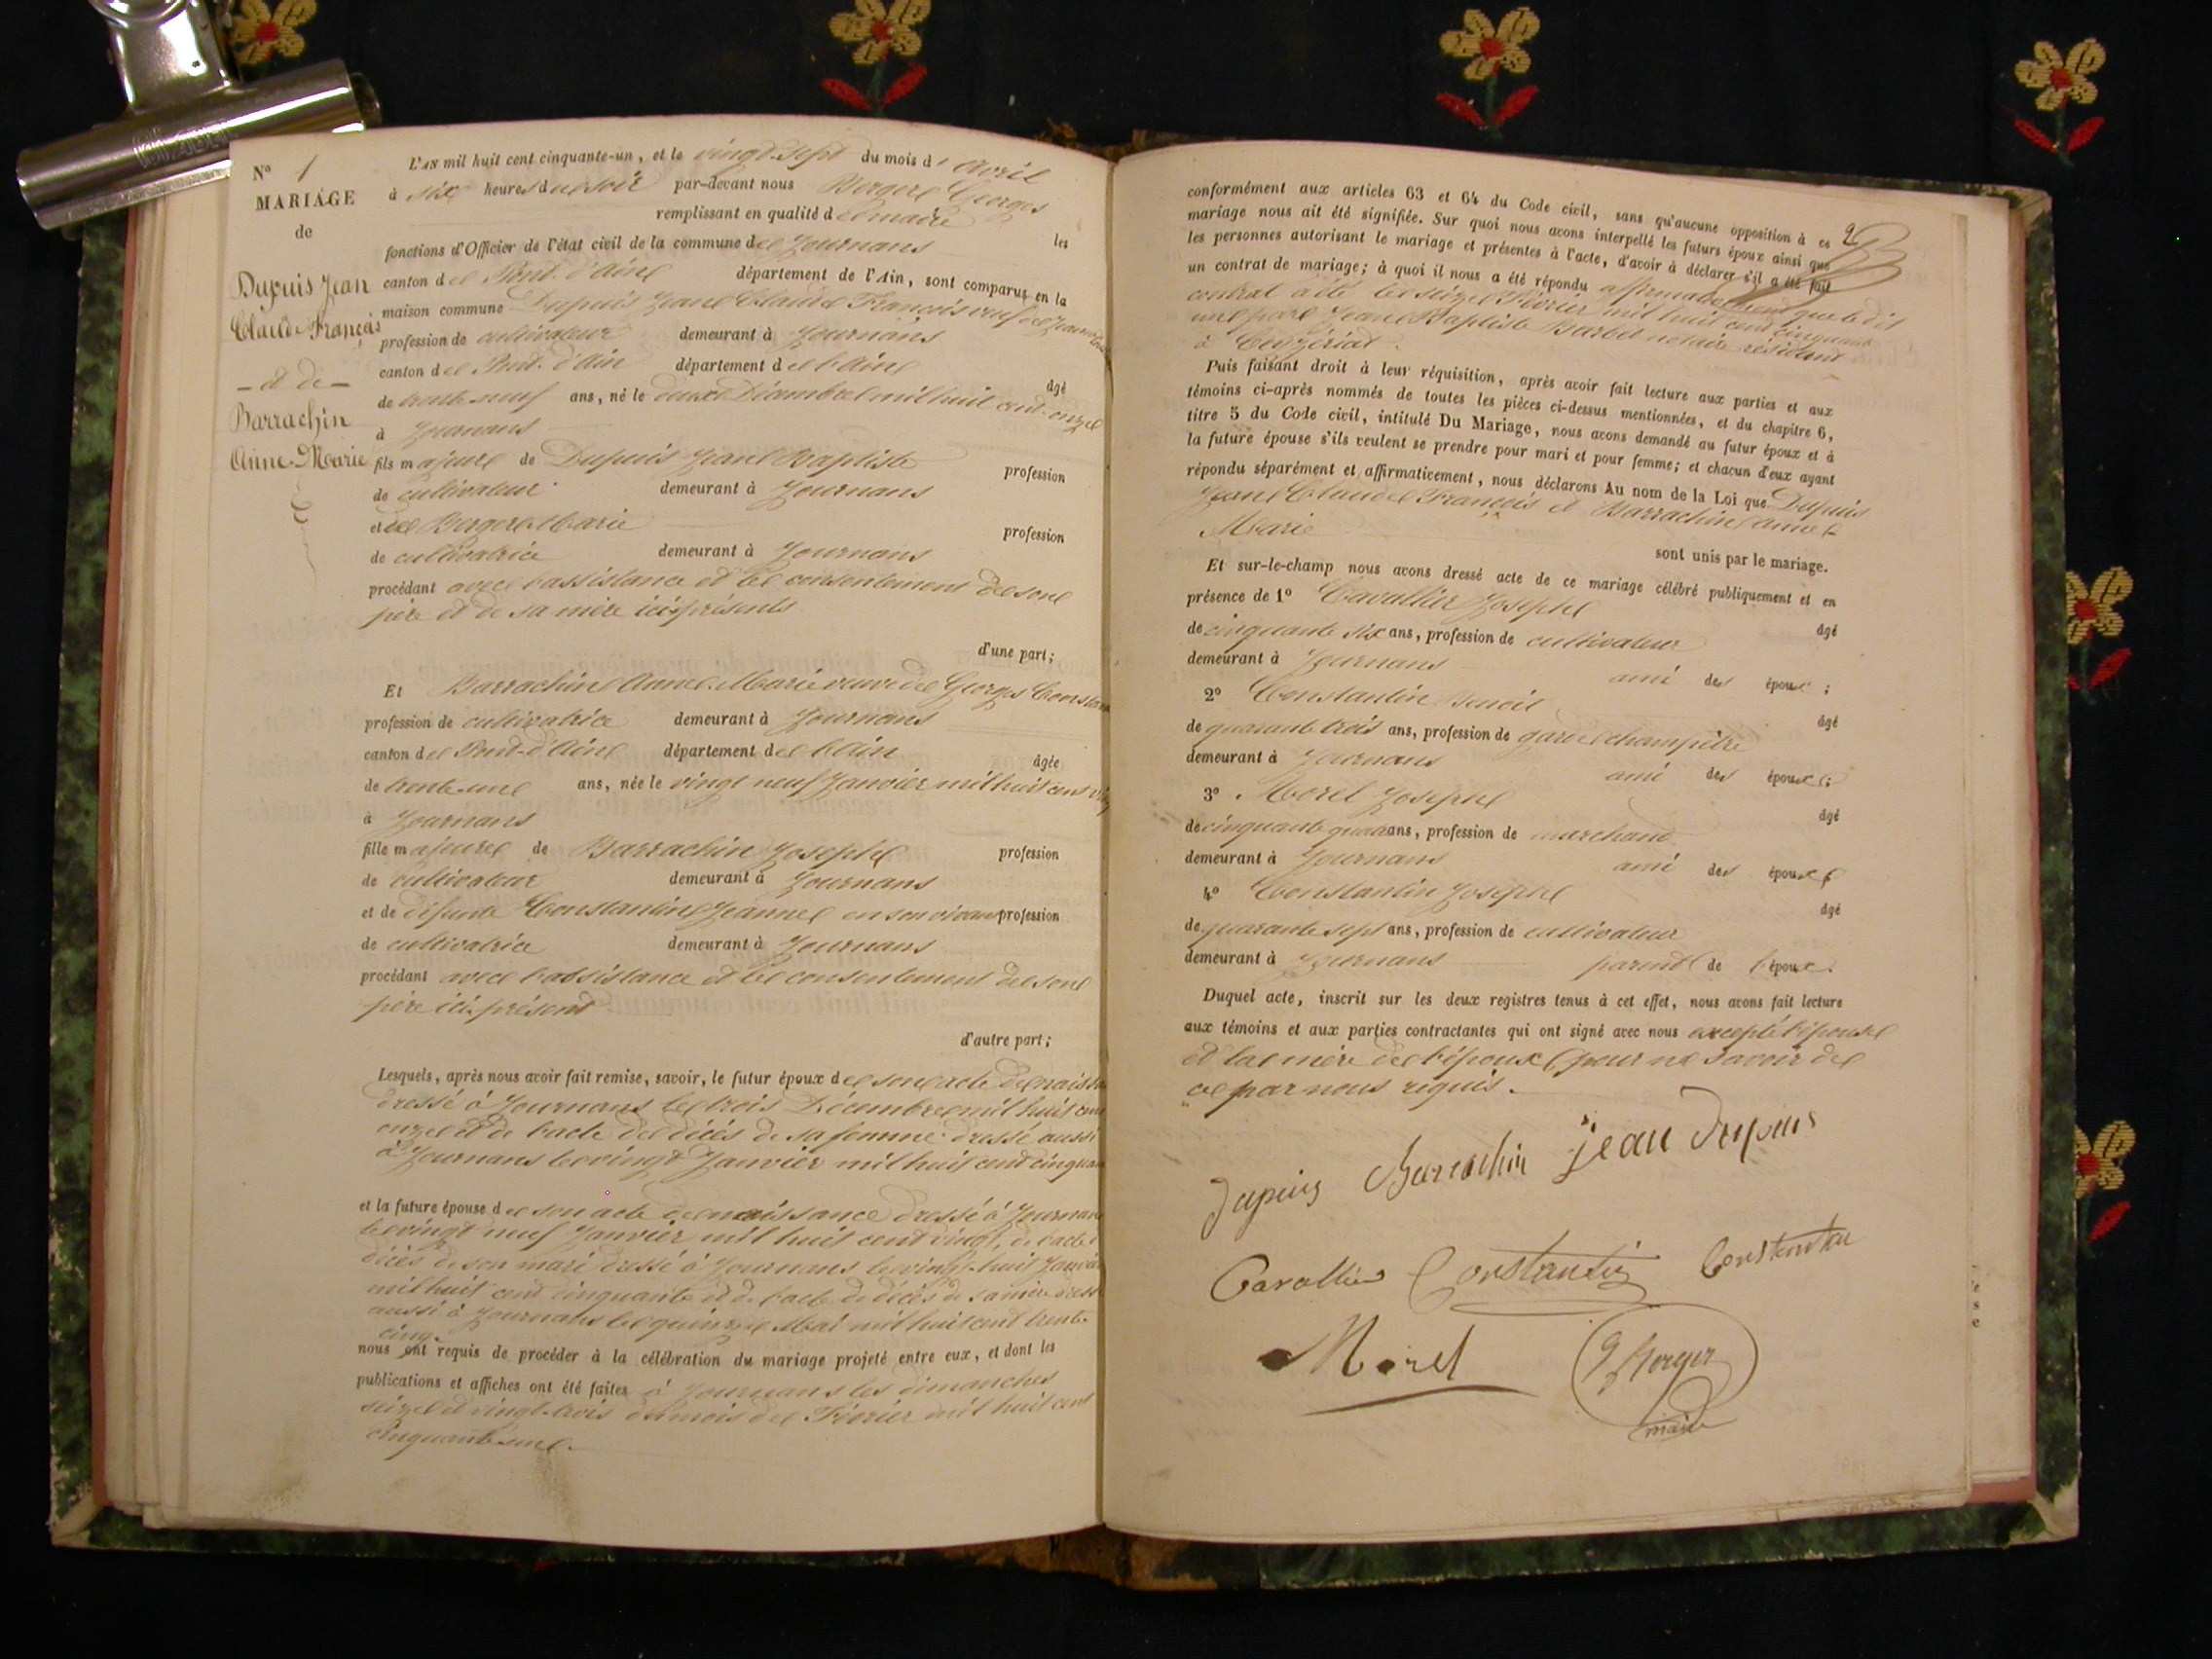 N° 1
MARIAGE
de
Dupuis Jean
Claude François
- et de -
Barrachin
Anne-Marie
L'AN mil huit cent cinquante-un, et le vingt-sept du mois d'avril
à six heures du soir par-devant nous Berger Georges
remplissant en qualité de maire les
fonctions d'Officier de l'état civil de la commune de Journans
canton de Pont-d'Ain département de l'Ain, sont comparus en la
maison commune Dupuis Jean Claude François veuf de
profession de cultivateur demeurant à Journans
canton de Pont-d'Ain département de l'Ain âgé
de trente neuf ans, né le deux Décembre mil huit cent onze
à Journans
fils majeur de Dupuis Jean Baptiste profession
de cultivateur demeurant à Journans
et de Berger Marie profession
de cultivatrice demeurant à Journans
procédant avec l'assistance et le consentement de son
père et de sa mère ici présents
d'une part;
Et Barrachin Anne-Marie veuve de Georges
profession de cultivatrice demeurant à Journans
canton de Pont-d'Ain département de l'Ain âgée
de trente-une ans, née le vingt neuf Janvier mil huit cent
à Journans
fille majeure de Barrachin Joseph profession
de cultivateur demeurant à Journans
et de défunte Constantin Jeanne en son vivant profession
de cultivatrice demeurant à Journans
procédant avec l'assistance et le consentement de son
père ici présent
d'autre part;
Lesquels, après nous avoir fait remise, savoir, le futur époux de son acte de
dressé à Journans le trois Décembre mil huit cent
onze et de l'acte de décès de sa femme dressé aussi
à Journans le vingt Janvier mil huit cent
et la future épouse de son acte de naissance dressé à Journans
le vingt neuf Janvier mil huit cent vingt, de l'acte
décès de son mari dressé à Journans le vingt-huit
mil huit cent cinquante et de l'acte de décès de sa mère
aussi à Journans le quinze Mai mil huit cent trente-
cinq.
nous ont requis de procéder à la célébration du mariage projeté entre eux, et dont les
publications et affiches ont été faites à Journans les dimanches
seize et vingt-trois du mois de Février mil huit cent
cinquante-un.
conformément aux articles 63 et 64 du Code civil, sans qu'aucune opposition à ce
mariage nous ait été signifiée. Sur quoi nous avons interpellé les futurs époux ainsi que
les personnes autorisant le mariage et présentes à l'acte, d'avoir à déclarer s'il a été fait
un contrat de mariage; à quoi il nous a été répondu affirmativement que le dit
contrat a été le seize Février mil huit cent cinquante
une par Jean Baptiste Barbet notaire résidant
à Ceyzériat.
Puis faisant droit à leur réquisition, après avoir fait lecture aux parties et aux
témoins ci-après nommés de toutes les pièces ci-dessus mentionnées, et du chapitre 6,
titre 5 du Code civil, intitulé Du Mariage, nous avons demandé au futur époux et à
la future épouse s'ils veulent se prendre pour mari et pour femme; et chacun d'eux ayant
répondu séparément et affirmativement, nous déclarons Au nom de la Loi que Dupuis
Jean Claude François et Barrachin Anne-
Marie
sont unis par le mariage.
Et sur-le-champ nous avons dressé acte de ce mariage célébré publiquement et en
présence de 1° Cavallier Joseph âgé
de cinquante six ans, profession de cultivateur
demeurant à Journans ami des époux;
2° Constantin Benoit âgé
de quarante trois ans, profession de garde champêtre
demeurant à Journans ami des époux;
3° Morel Joseph âgé
de cinquante quatre ans, profession de marchand
demeurant à Journans ami des époux
4° Constantin Joseph âgé
de quarante sept ans, profession de cultivateur
demeurant à Journans parent de l'époux.
Duquel acte, inscrit sur les deux registres tenus à cet effet, nous avons fait lecture
aux témoins et aux parties contractantes qui ont signé avec nous excepté l'épouse
et la mère de l'époux pour ne savoir de
ce par nous requis.
Dupuis Barrachin jean Dupuis
Cavallier Constantin Constantin
Morel G Berger
maire